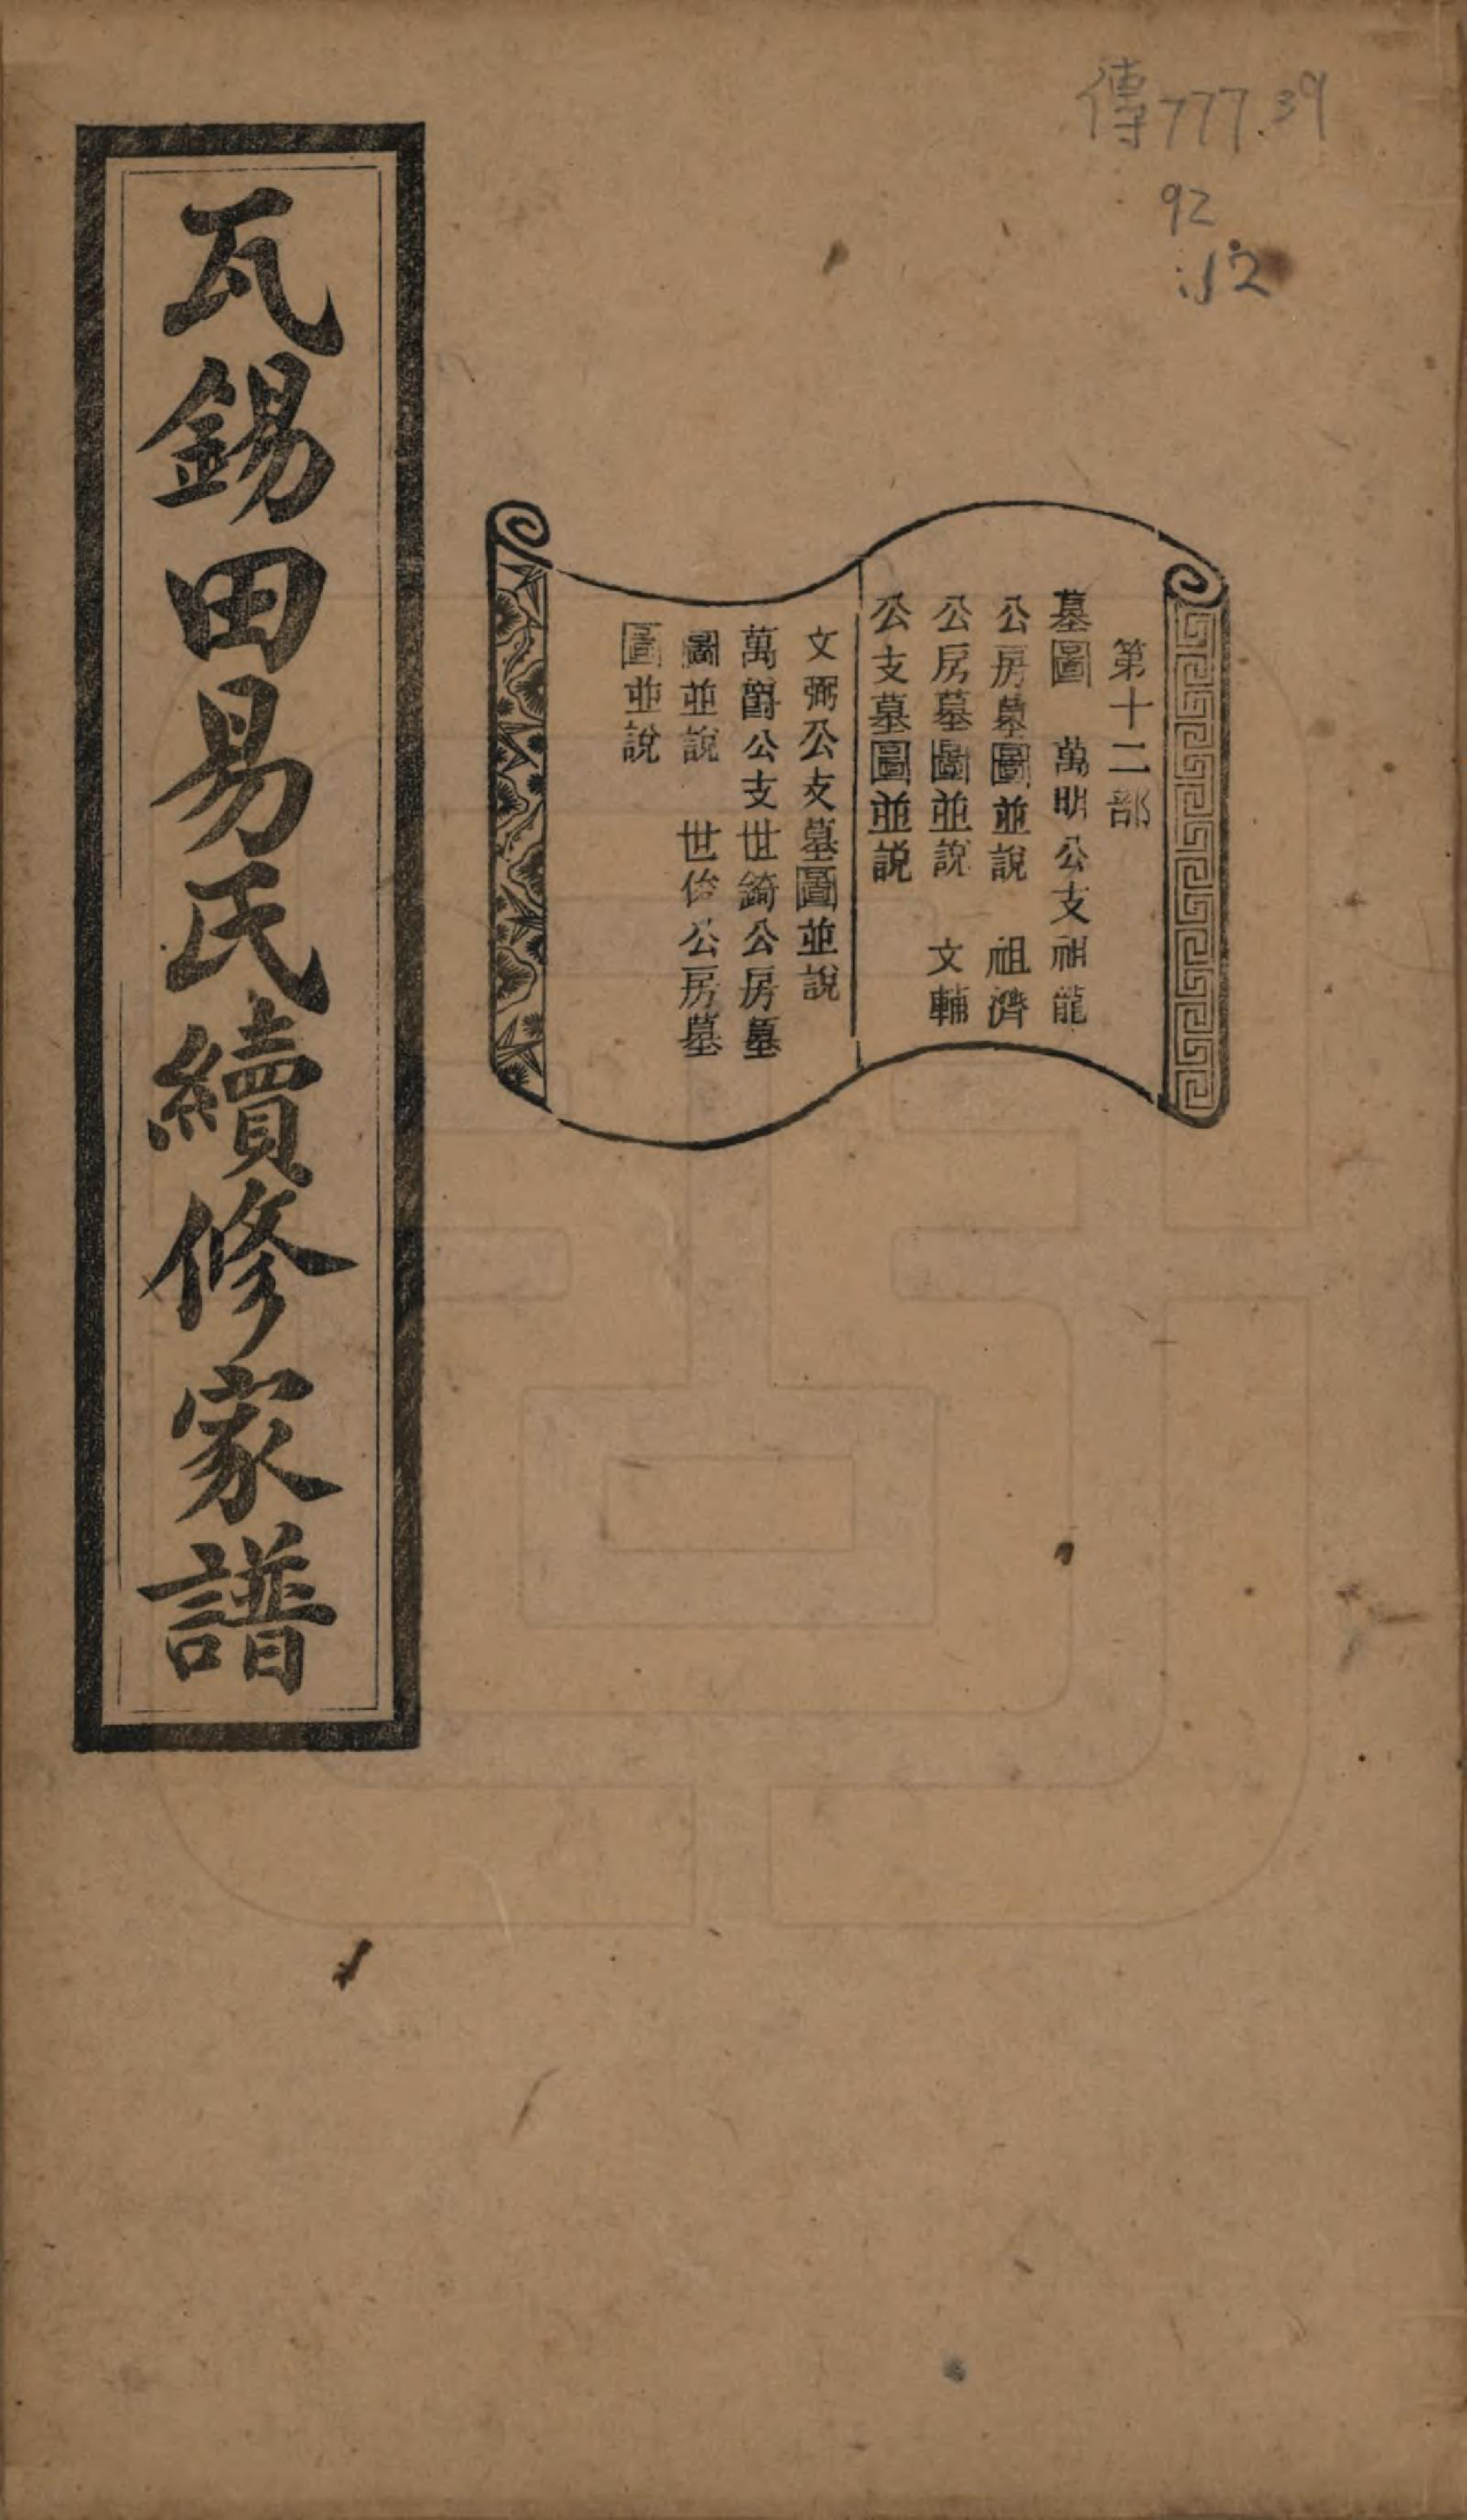 傳777.39
92
:12
第十二部
墓圖 萬明公支祖龍
公房墓圖並說 祖濟
公房墓圖並說 文輔
公支墓圖並説
文弼公支墓圖並說
萬爵公支世錡公房墓
圖並說 世佺公房墓
圖並說
瓦錫田易氏續修家譜